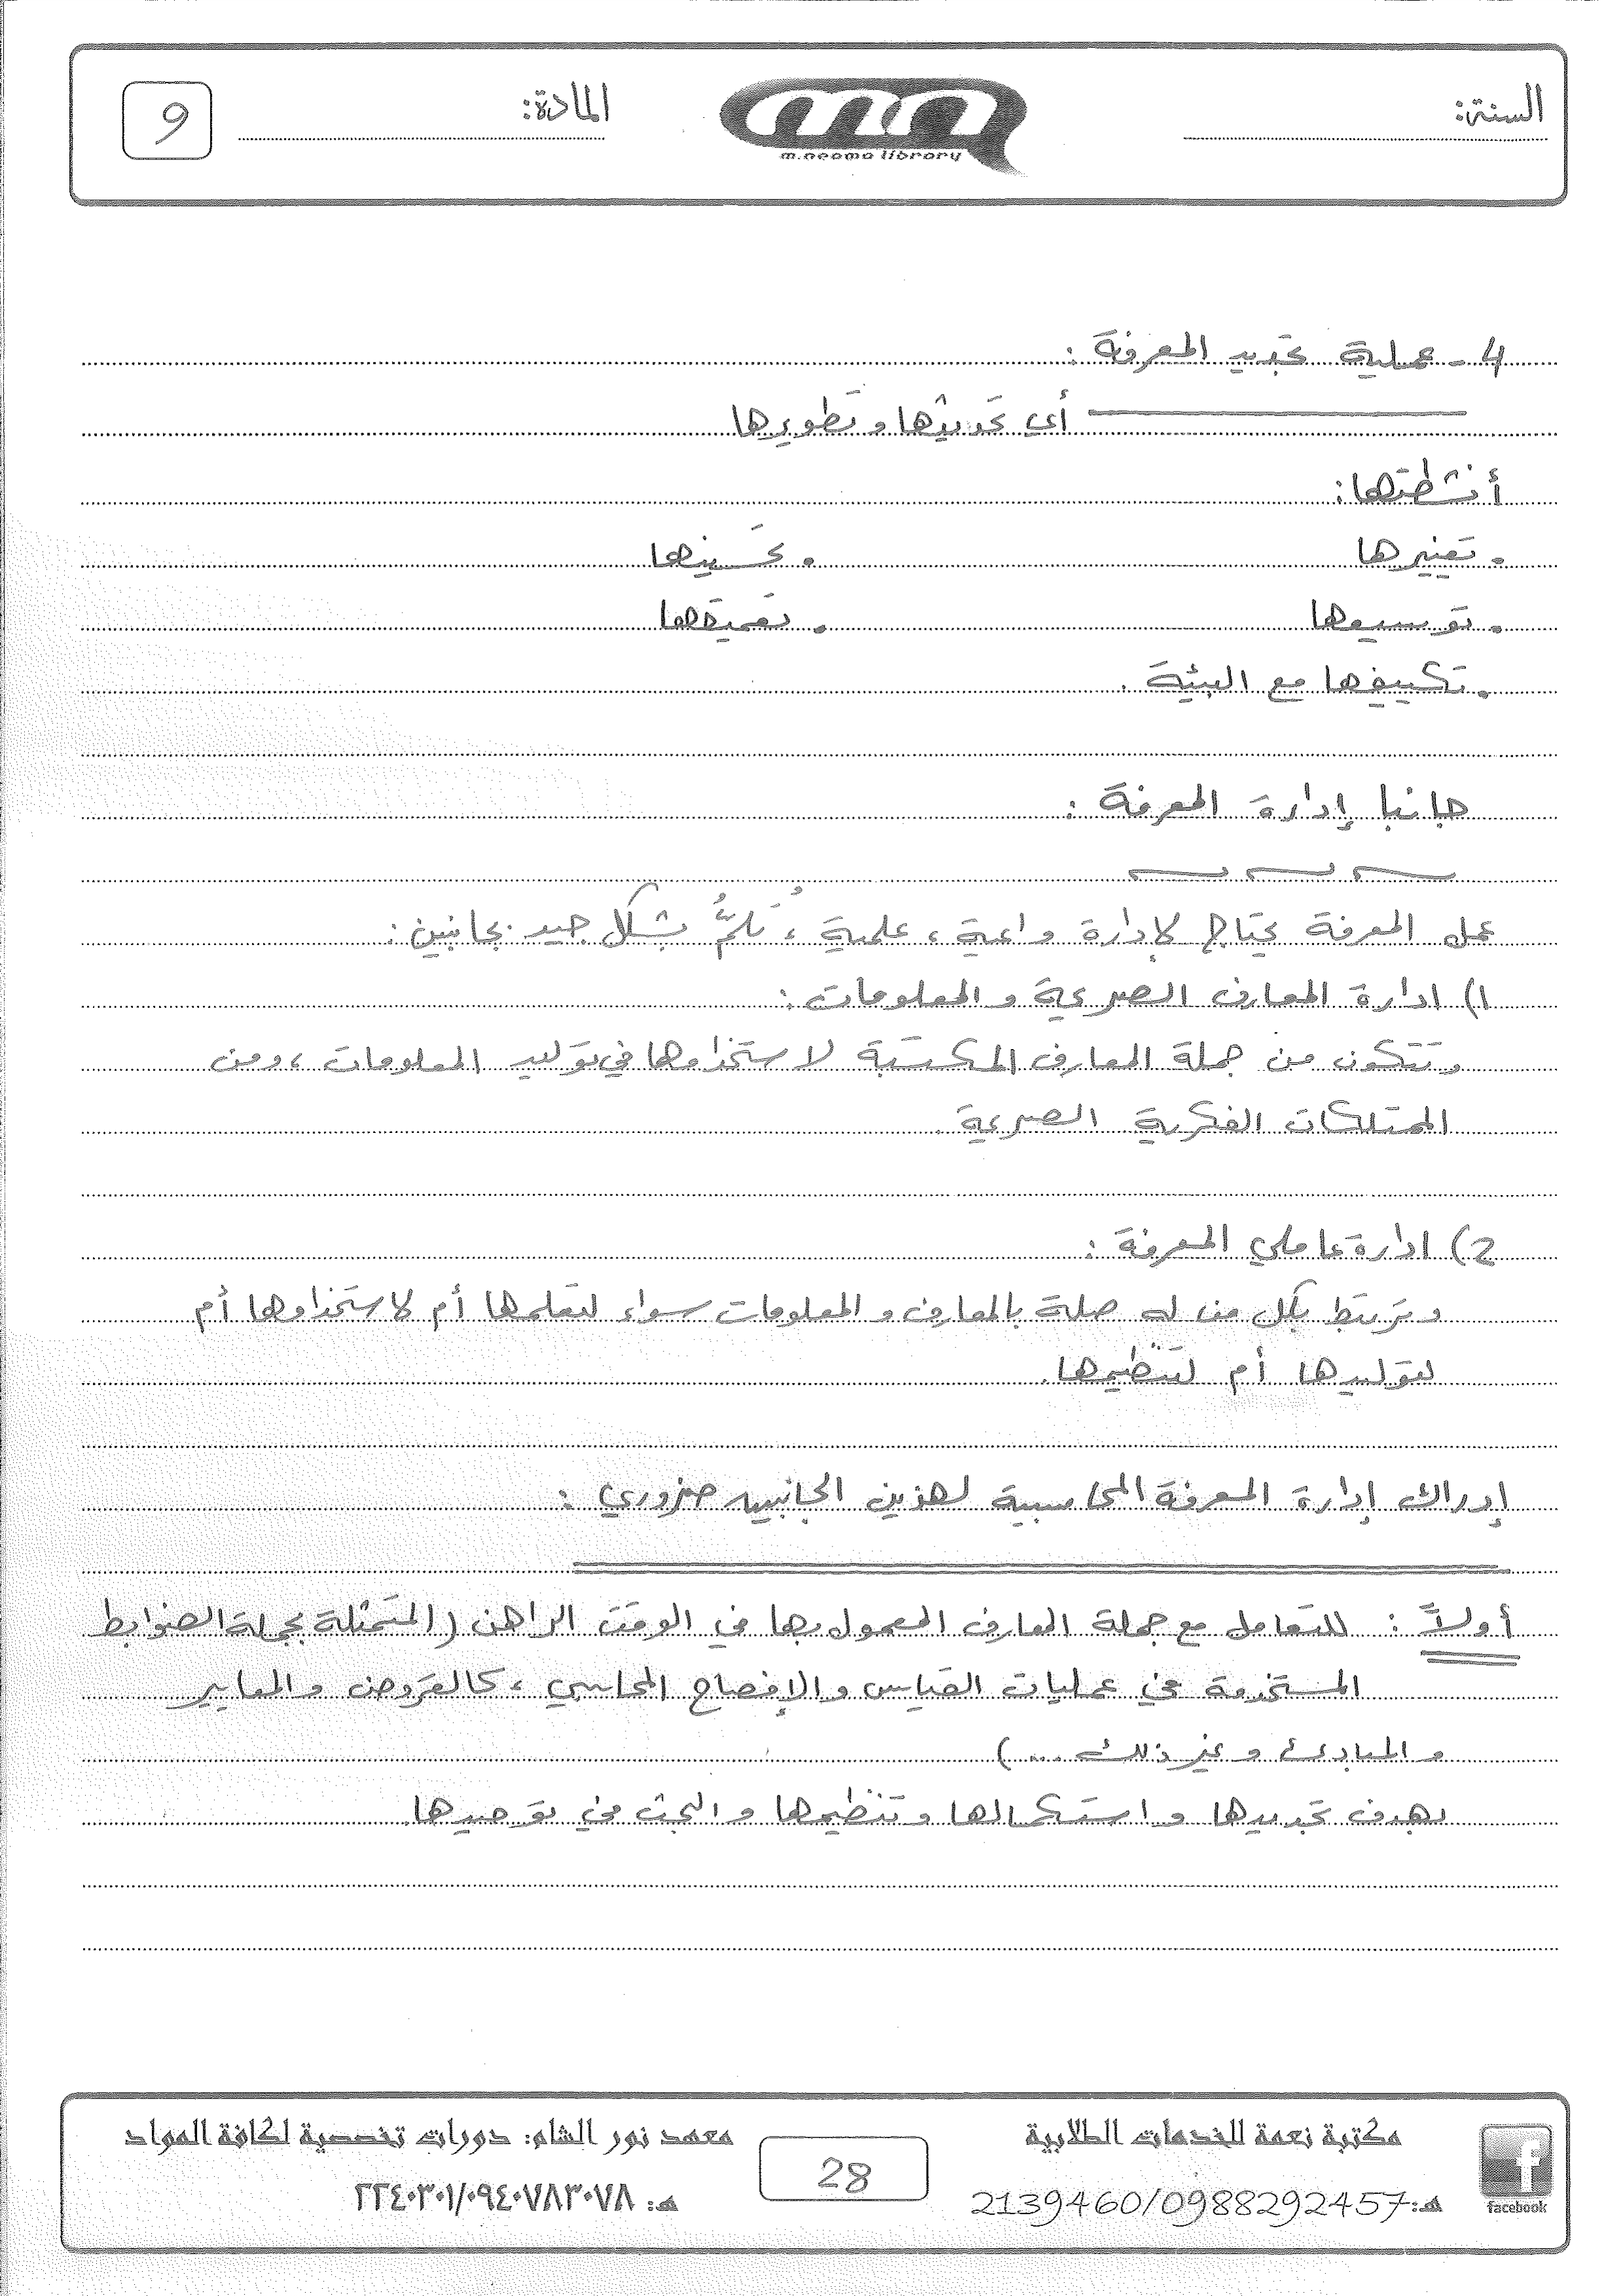 السنة:
المادة:
9
m.neoma library
4- عملية تجديد المعرفة :
أي تحديثها و تطويرها
أنشطتها:
. تغييرها . تحسينها
. توسيعها . تعميقها
. تكييفها مع البيئة .
جانبا إدارة المعرفة :
عمل المعرفة يحتاج لإدارة واعية ، علمية ، تُلمُّ بشكل جيد بجانبين :
1) ادارة المعارف الصريحة و المعلومات :
و تتكون من جملة المعارف المكتسبة لاستخدامها في توليد المعلومات ، ومن
الممتلكات الفكرية الصريحة .
2) ادارة عاملي المعرفة :
و ترتبط بكل من له صلة بالمعارف و المعلومات سواء لتعلمها أم لاستخدامها أم
لتوليدها أم لتنظيمها.
إدراك إدارة المعرفة المحاسبية لهذين الجانبين ضروري :
أولاً : للتعامل مع جملة المعارف المعمول بها في الوقت الراهن (المتمثلة بجملة الضوابط
المستخدمة في عمليات القياس و الإفصاح المحاسبي ، كالفروض و المعايير
و المبادئ و غير ذلك ... )
بهدف تجديدها و استكمالها و تنظيمها و البحث في توحيدها.
مكتبة نعمة للخدمات الطلابية
هـ: 2139460/0988292457
facebook
28
معهد نور الشام: دورات تخصصية لكافة المواد
هـ: ٢٢٤٠٣٠١/٠٩٤٠٧٨٣٠٧٨